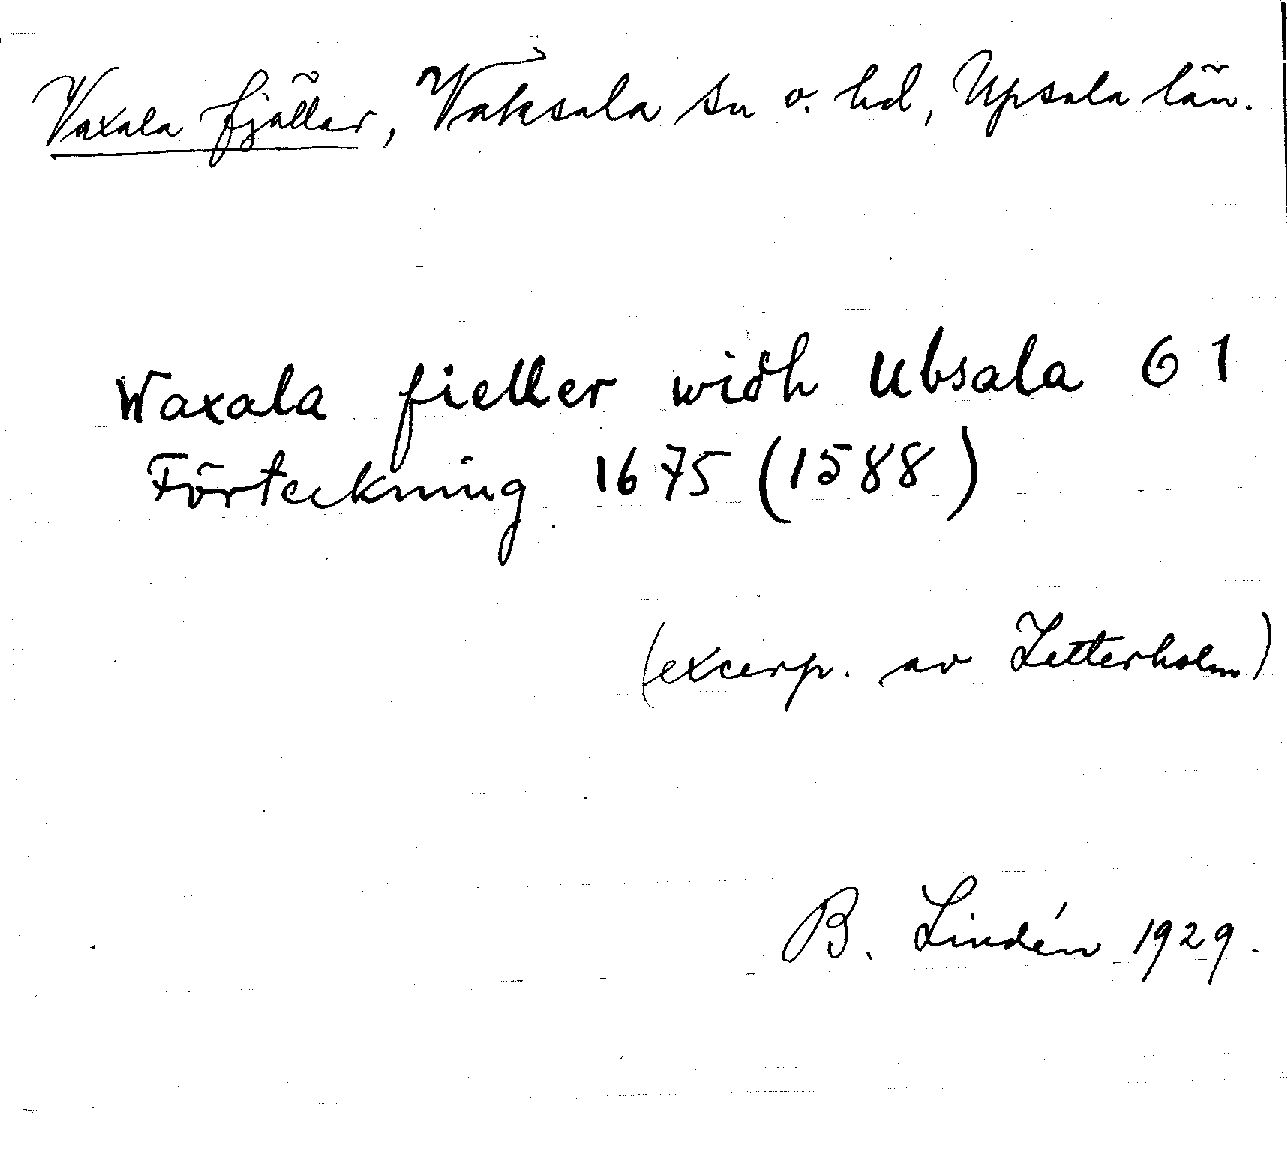 Vaxala fjällar, Vaksala sn o. hd, Upsala län.
Waxala fieller widh Ubsala 61
Förteckning 1675 (1588)
(excerp. av Zetterholm)
B. Lindén 1929.